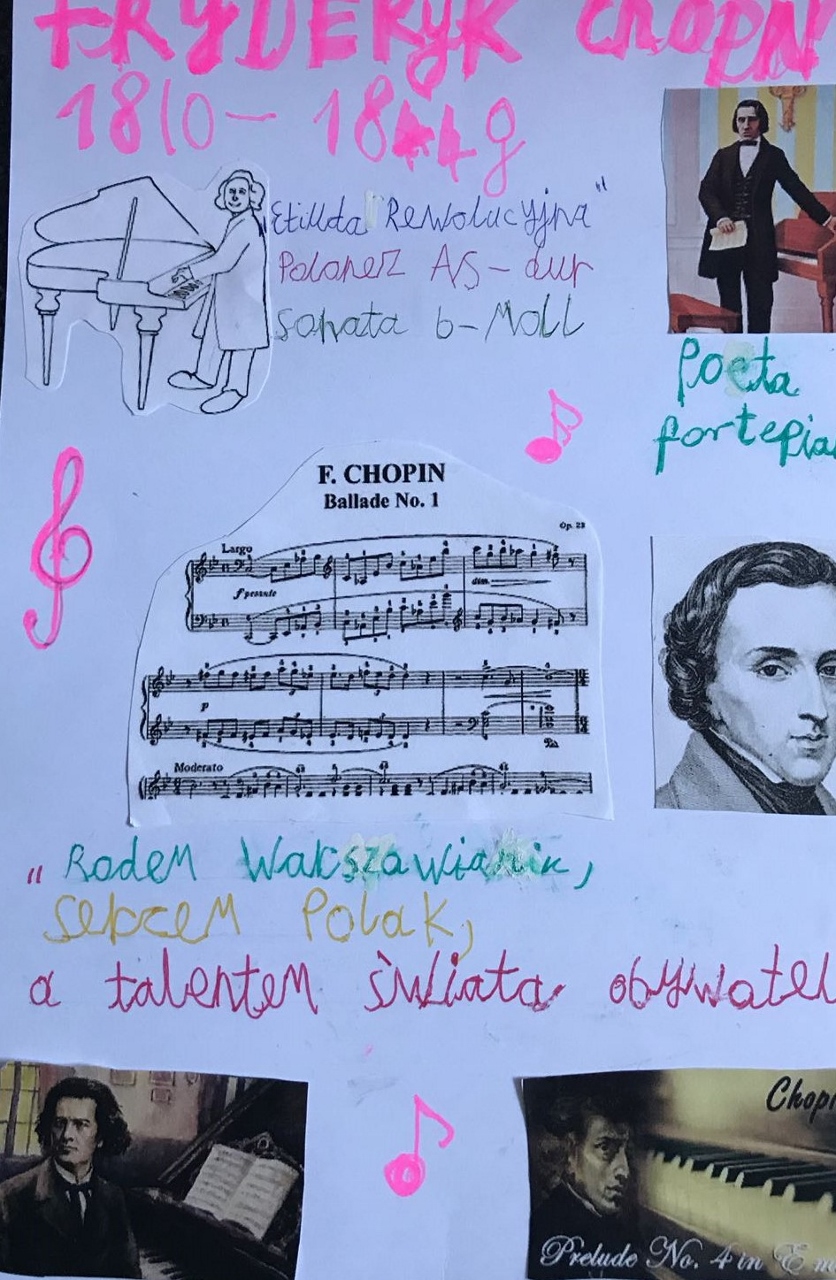 FRYDERYK CHOPIN
1810 – 1849
„Etiuda "Rewolucyjna"
Polonez AS-dur
Sonata b-Moll
Poeta
fortepia
F. CHOPIN
Ballade No. 1
Op. 23
Largo
f pesante
dim.
p
Moderato
„Rodem Warszawianin,
sercem Polak,
a talentem świata obywatel
Chopi
Prelude No. 4 in E m